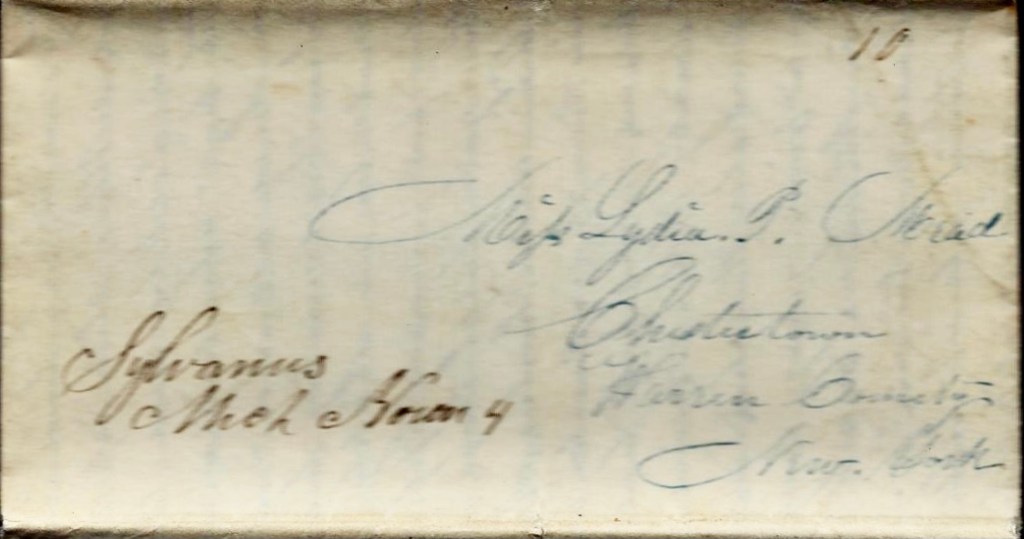 10
Miss Lydia. P. Mead
Chestertown
Warren County
New. York
Sylvanus
Mich Novem 4